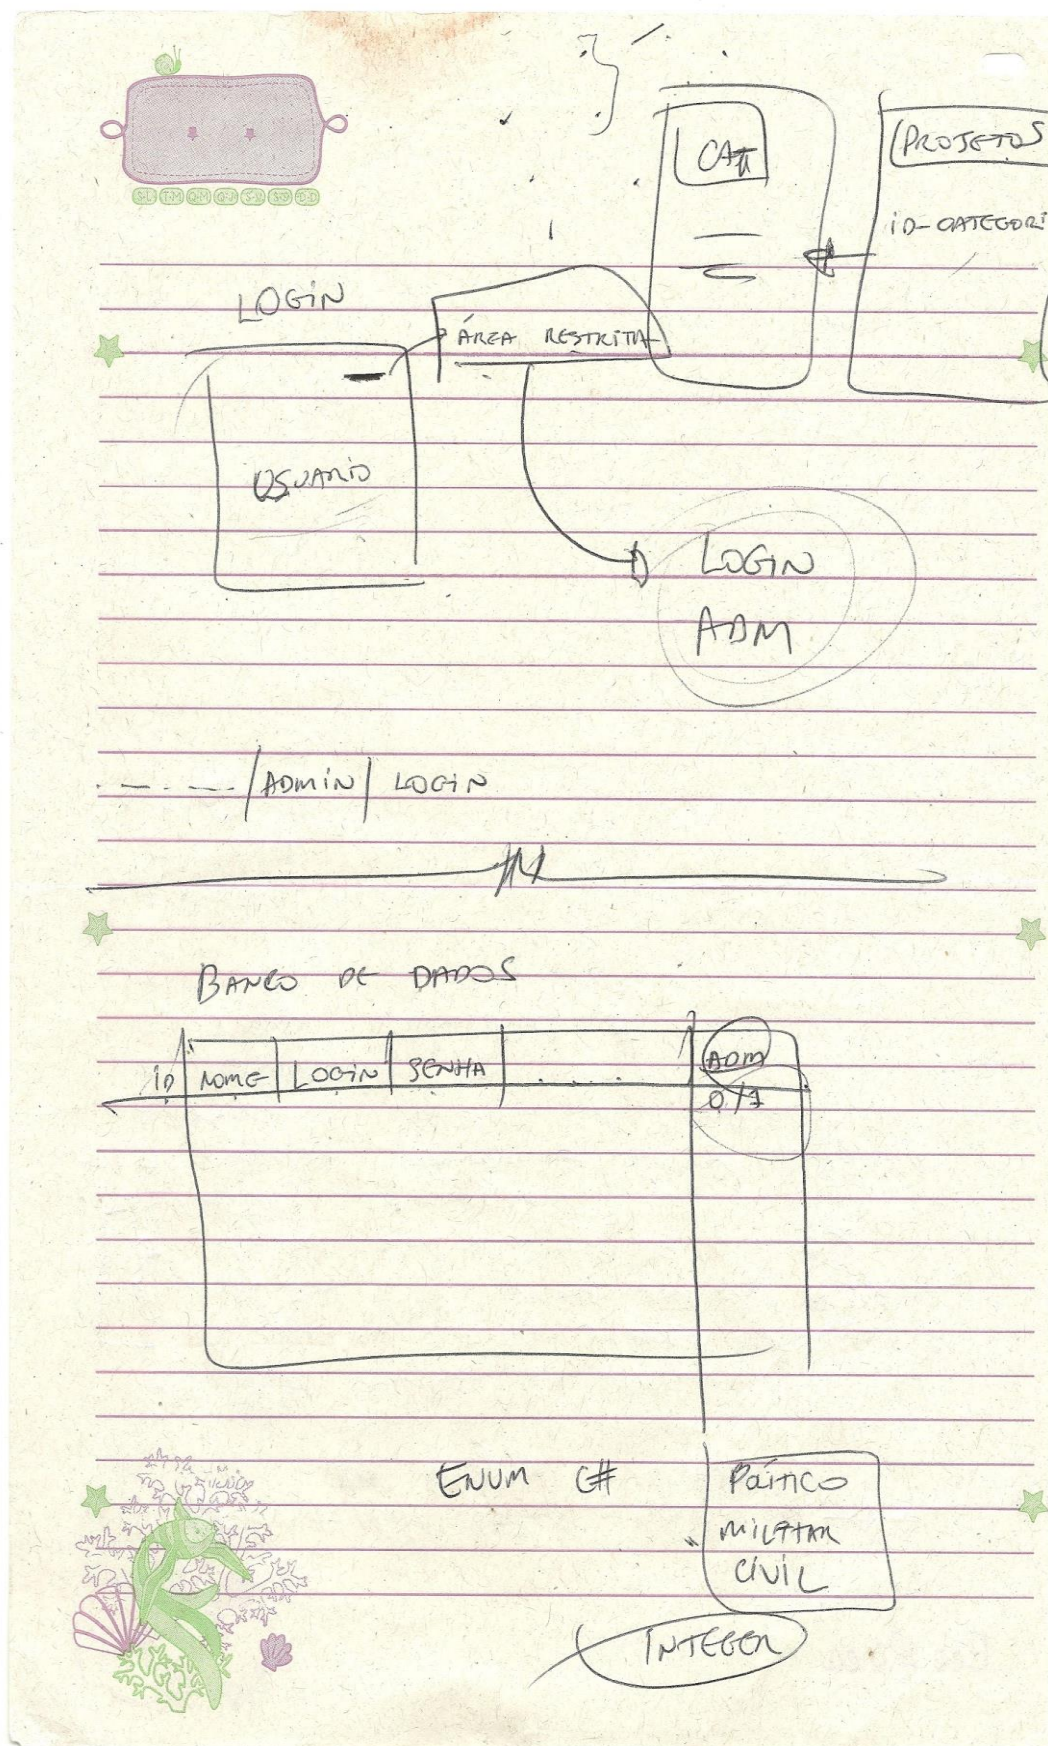 CAT
PROJETOS
ID-CATEGORI
LOGIN
ÁREA RESTRITA
USUARIO
LOGIN
ADM
/ADMIN/ LOGIN
BANCO DE DADOS
ID NOME LOGIN SENHA ..... ADM
0/1
ENUM C#
POÍTICO
MILITAR
CIVIL
INTEGER